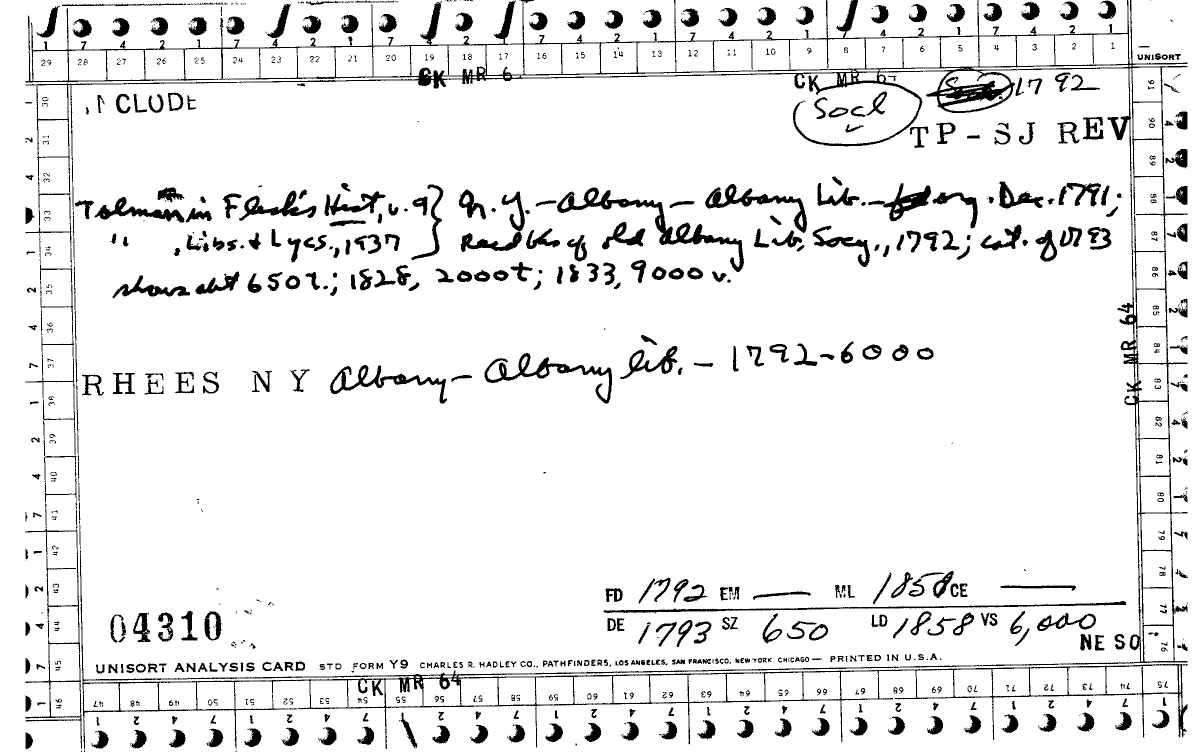 29 28 27 26 25 24 23 22 21 20 19 18 17 16 15 14 13 12 11 10 9 8 7 6 5 4 3 2 1
UNISORT
CK MR 6
CK MR 64
INCLUDE
Socl
1792
TP-SJ REV
Tolman in Flick's Hist, v. 9} N.Y. - Albany - Albany Lib. - org. Dec. 1791;
" , Libs. & Lycs., 1937 } of old Albany Lib. Socy., 1792; cat. of 1793
shows abt 650 t.; 1828, 2000 t; 1833, 9000 v.
RHEES N Y Albany - Albany lib. - 1792 - 6000
CK MR 64
FD 1792 EM — ML 1858 CE —
DE 1793 SZ 650 LD 1858 VS 6,000
NE SO
04310
UNISORT ANALYSIS CARD STD FORM Y9 CHARLES R. HADLEY CO., PATHFINDERS, LOS ANGELES, SAN FRANCISCO, NEW YORK CHICAGO — PRINTED IN U.S.A.
CK MR 64
47 48 49 50 51 52 53 54 55 56 57 58 59 60 61 62 63 64 65 66 67 68 69 70 71 72 73 74 75